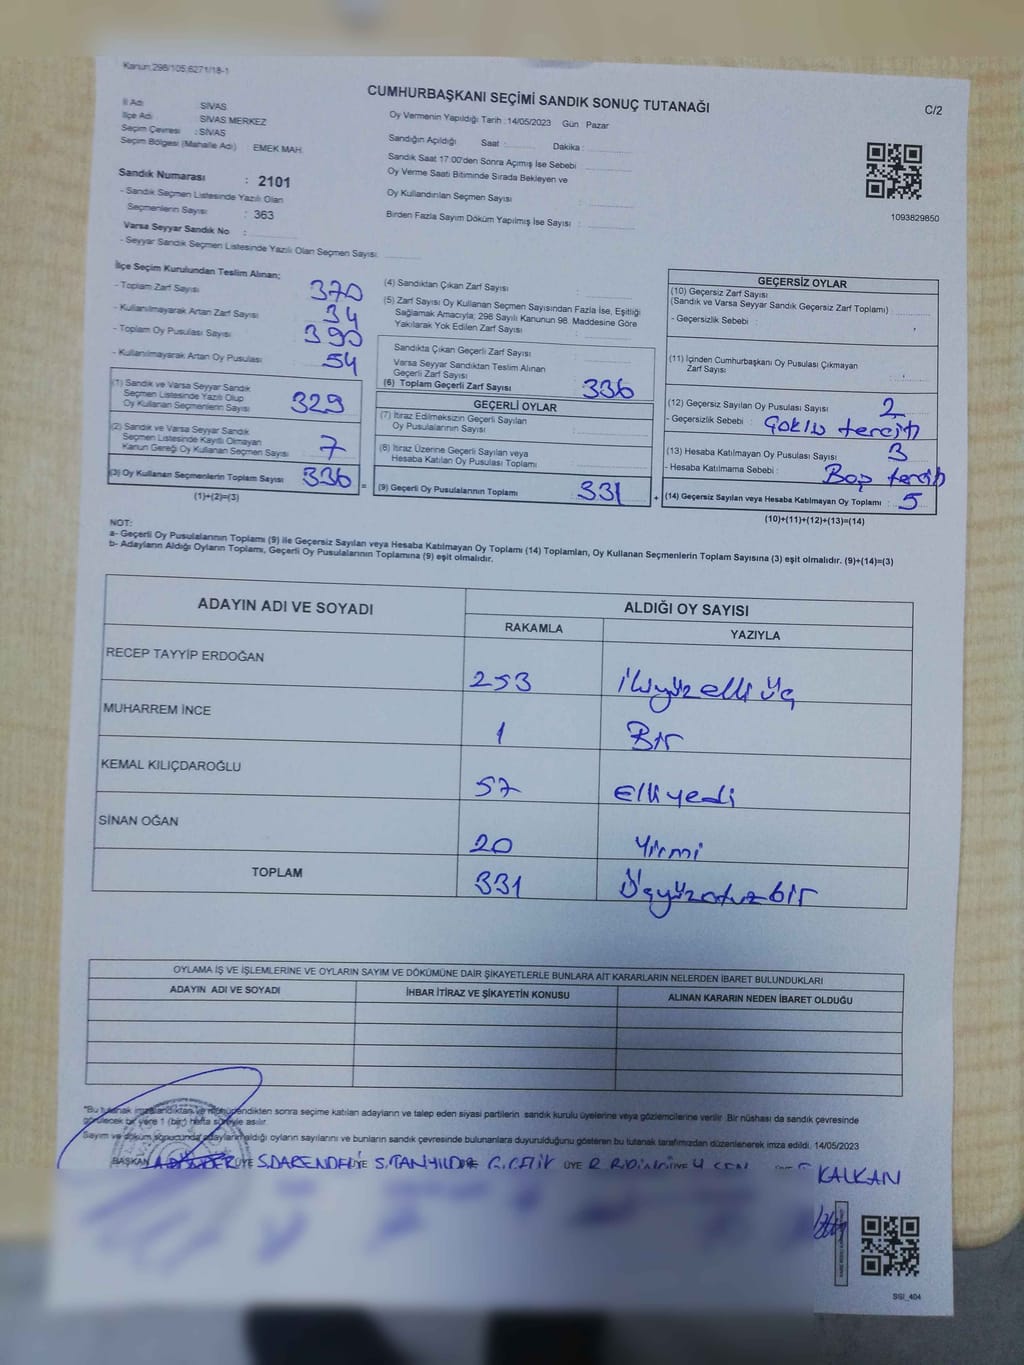 Kanun:298/105;6271/18-1
CUMHURBAŞKANI SEÇİMİ SANDIK SONUÇ TUTANAĞI
C/2
İl Adı : SİVAS
İlçe Adı : SİVAS MERKEZ
Seçim Çevresi : SİVAS
Seçim Bölgesi (Mahalle Adı) EMEK MAH.
Oy Vermenin Yapıldığı Tarih :14/05/2023 Gün Pazar
Sandığın Açıldığı Saat : Dakika :
Sandık Saat 17:00'den Sonra Açımış İse Sebebi :
Oy Verme Saati Bitiminde Sırada Bekleyen ve
Oy Kullandırılan Seçmen Sayısı :
Birden Fazla Sayım Döküm Yapılmış İse Sayısı :
1093829850
Sandık Numarası : 2101
- Sandık Seçmen Listesinde Yazılı Olan
Seçmenlerin Sayısı : 363
Varsa Seyyar Sandık No :
- Seyyar Sandık Seçmen Listesinde Yazılı Olan Seçmen Sayısı:
İlçe Seçim Kurulundan Teslim Alınan;
- Toplam Zarf Sayısı 370
- Kullanılmayarak Artan Zarf Sayısı 34
- Toplam Oy Pusulası Sayısı 390
- Kullanılmayarak Artan Oy Pusulası 54
(1) Sandık ve Varsa Seyyar Sandık
Seçmen Listesinde Yazılı Olup
Oy Kullanan Seçmenlerin Sayısı 329
(2) Sandık ve Varsa Seyyar Sandık
Seçmen Listesinde Kayıtlı Olmayan
Kanun Gereği Oy Kullanan Seçmen Sayısı 7
(3) Oy Kullanan Seçmenlerin Toplam Sayısı 336
(1)+(2)=(3)
=
(4) Sandıktan Çıkan Zarf Sayısı :
(5) Zarf Sayısı Oy Kullanan Seçmen Sayısından Fazla İse, Eşitliği
Sağlamak Amacıyla; 298 Sayılı Kanunun 98. Maddesine Göre
Yakılarak Yok Edilen Zarf Sayısı :
Sandıkta Çıkan Geçerli Zarf Sayısı
Varsa Seyyar Sandıktan Teslim Alınan
Geçerli Zarf Sayısı
(6) Toplam Geçerli Zarf Sayısı 336
GEÇERLİ OYLAR
(7) İtiraz Edilmeksizin Geçerli Sayılan
Oy Pusulalarının Sayısı
(8) İtiraz Üzerine Geçerli Sayılan veya
Hesaba Katılan Oy Pusulası Toplamı
(9) Geçerli Oy Pusulalarının Toplamı 331
+
GEÇERSİZ OYLAR
(10) Geçersiz Zarf Sayısı
(Sandık ve Varsa Seyyar Sandık Geçersiz Zarf Toplamı) :
- Geçersizlik Sebebi :
(11) İçinden Cumhurbaşkanı Oy Pusulası Çıkmayan
Zarf Sayısı
(12) Geçersiz Sayılan Oy Pusulası Sayısı : 2
- Geçersizlik Sebebi : Çoklu tercih
(13) Hesaba Katılmayan Oy Pusulası Sayısı : 3
- Hesaba Katılmama Sebebi : Boş tercih
(14) Geçersiz Sayılan veya Hesaba Katılmayan Oy Toplamı : 5
(10)+(11)+(12)+(13)=(14)
NOT:
a- Geçerli Oy Pusulalarının Toplamı (9) ile Geçersiz Sayılan veya Hesaba Katılmayan Oy Toplamı (14) Toplamları, Oy Kullanan Seçmenlerin Toplam Sayısına (3) eşit olmalıdır. (9)+(14)=(3)
b- Adayların Aldığı Oyların Toplamı, Geçerli Oy Pusulalarının Toplamına (9) eşit olmalıdır.
ADAYIN ADI VE SOYADI ALDIĞI OY SAYISI
RAKAMLA YAZIYLA
RECEP TAYYİP ERDOĞAN 253 İkiyüzelli üç
MUHARREM İNCE 1 Bir
KEMAL KILIÇDAROĞLU 57 Elli yedi
SİNAN OĞAN 20 Yirmi
TOPLAM 331 Üçyüzotuzbir
OYLAMA İŞ VE İŞLEMLERİNE VE OYLARIN SAYIM VE DÖKÜMÜNE DAİR ŞİKAYETLERLE BUNLARA AİT KARARLARIN NELERDEN İBARET BULUNDUKLARI
ADAYIN ADI VE SOYADI İHBAR İTİRAZ VE ŞİKAYETİN KONUSU ALINAN KARARIN NEDEN İBARET OLDUĞU
*Bu tutanak imzalandıktan ve mühürlendikten sonra seçime katılan adayların ve talep eden siyasi partilerin sandık kurulu üyelerine veya gözlemcilerine verilir. Bir nüshası da sandık çevresinde
görülecek bir yere 1 (bir) hafta süreyle asılır.
Sayım ve döküm sonucunda adayların aldığı oyların sayılarını ve bunların sandık çevresinde bulunanlara duyurulduğunu gösteren bu tutanak tarafımızdan düzenlenerek imza edildi. 14/05/2023
BAŞKAN ÜYE S.DARENDELİ ÜYE S.TANYILDIZ G.ÇELİK ÜYE ÜYE KALKAN
SSI_404